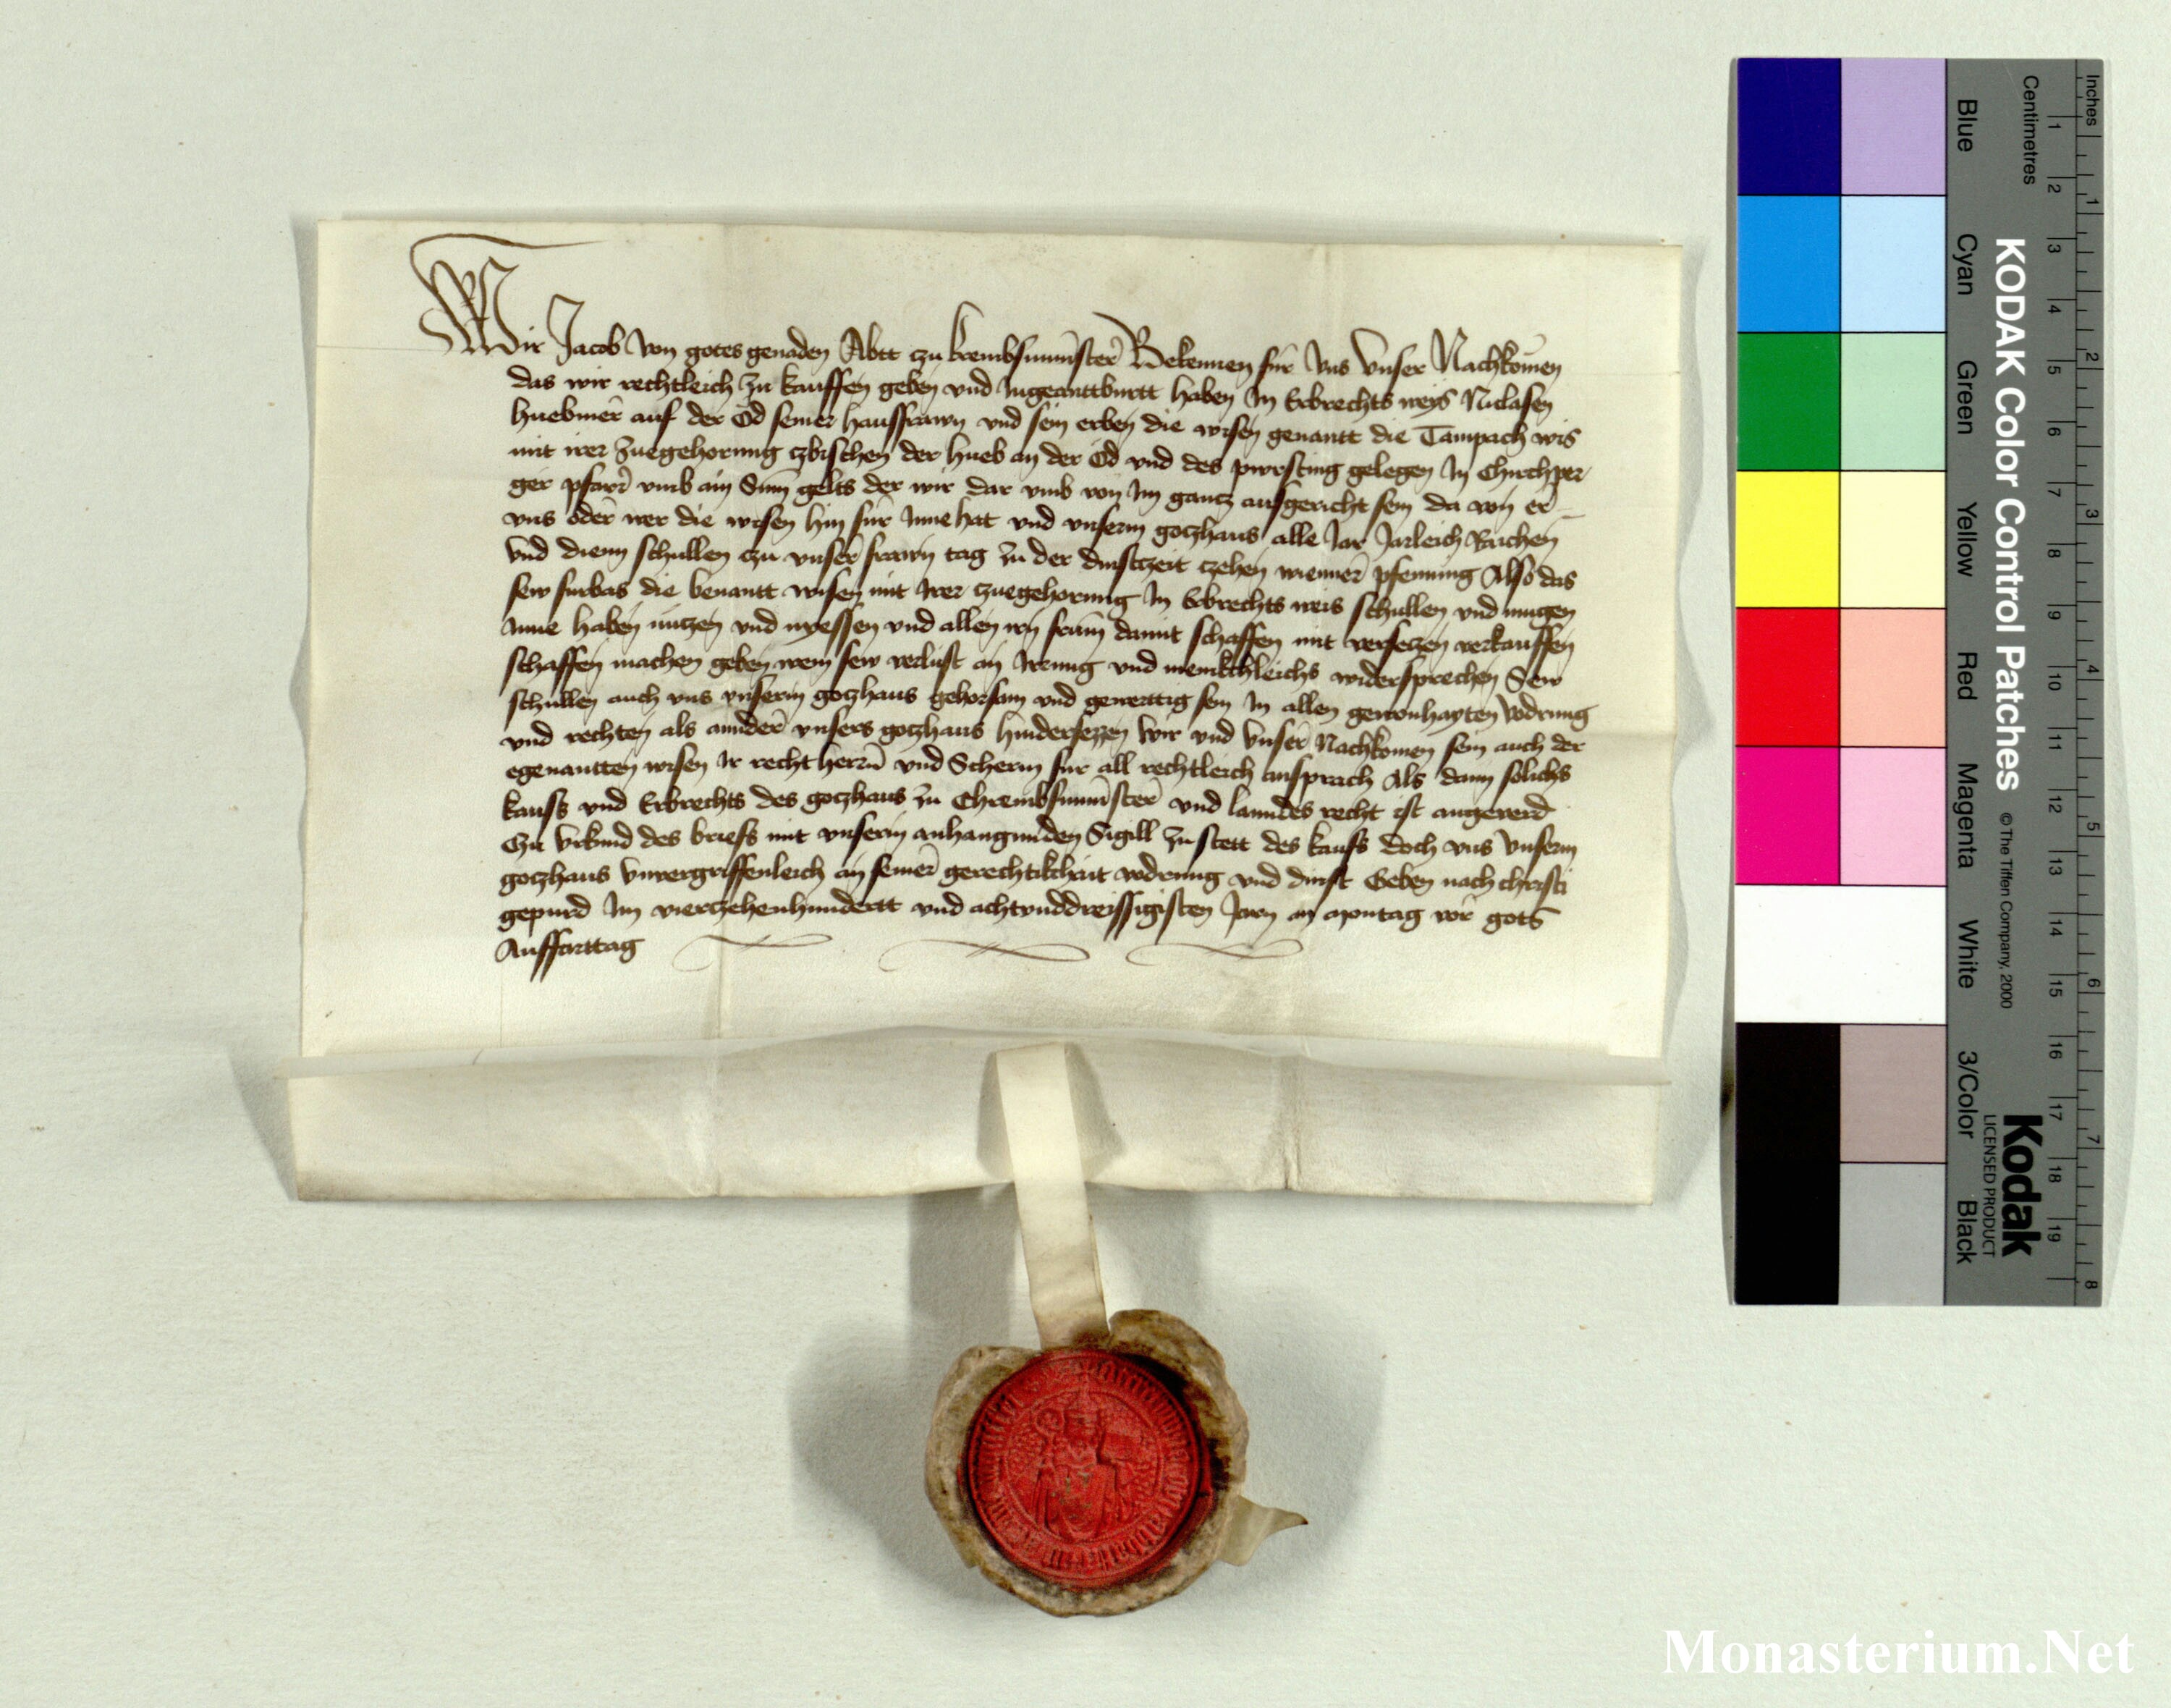 Wir Jacob von gotes genaden Abtt czu krembsmunster Bekennen fur vns vnser Nachkomen
das wir rechtleich zu kauffen geben vnd Ingeanttburtt haben In Erbrechts weys Niclasen
huebmer auf der Öd seiner hausfrawn vnd sein erben die wisen genantt die Tampach wis
mit irer zuegehorung czbischen der hueb an der Öd vnd des gelegen In Chirchper
ger pfarr vmb ain Sum gelts der wir dar vmb von Im gantz ausgericht sein da von er
vns oder wer die wisen hin fur Inne hat vnd vnserm goczhaus alle Jar Jarleich Raichen
vnd dienn schullen czu vnser frawn tag zu der dinstczeit czehen wienner pfenning Also das
sew furbas die benantt wisen mit Irer czuegehorung In Erbrechts weis schullen vnd mugen
Inne haben nüczen vnd nyessen vnd allen irn frum damit schaffen mit verseczen verkauffen
schaffen machen geben wem sew verlust an Irrung vnd menikchleichs widersprechen Sew
schullen auch vns vnserm goczhaus gehorsam vnd gewerttig sein In allen gewonhayten vodrung
vnd rechten als annder vnsers goczhaus hindersezzen Wir vnd vnser Nachkomen sein auch der
egenantten wisen Ir recht herrn vnd Scherm fur all rechtleich ansprach Als dann solichs
kaufs vnd Erbrechts des goczhaus zu Chrembsmunster vnd lanndes recht ist angeuerd
Czu vrkund des briefs mit vnserm anhangunden Sigill zu stett des kaufs doch vns vnserm
goczhaus vnuergriffenleich an seiner gerechtikchait vodrung vnd dinst Geben nach christi
gepurd Im vierczehenhundertt vnd achtvnddreissigisten Jarn an montag vor gots
Auffarttag
Inches
Centimetres
KODAK Color Control Patches
© The Tiffen Company, 2000
Kodak
LICENSED PRODUCT
Blue
Cyan
Green
Yellow
Red
Magenta
White
3/Color
Black
1 2 3 4 5 6 7 8 9 10 11 12 13 14 15 16 17 18 19
1 2 3 4 5 6 7 8
Monasterium.Net